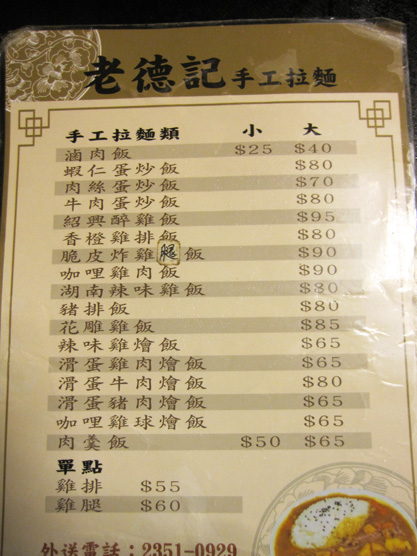 老德記手工拉麵
手工拉麵類 小 大
滷肉飯 $25 $40
蝦仁蛋炒飯 $80
肉絲蛋炒飯 $70
牛肉蛋炒飯 $80
紹興醉雞飯 $95
香橙雞排飯 $80
脆皮炸雞腿飯 $90
咖哩雞肉飯 $90
湖南辣味雞飯 $80
豬排飯 $80
花雕雞飯 $85
辣味雞燴飯 $65
滑蛋雞肉燴飯 $65
滑蛋牛肉燴飯 $80
滑蛋豬肉燴飯 $65
咖哩雞球燴飯 $65
肉羹飯 $50 $65
單點
雞排 $55
雞腿 $60
外送電話：2351-0929